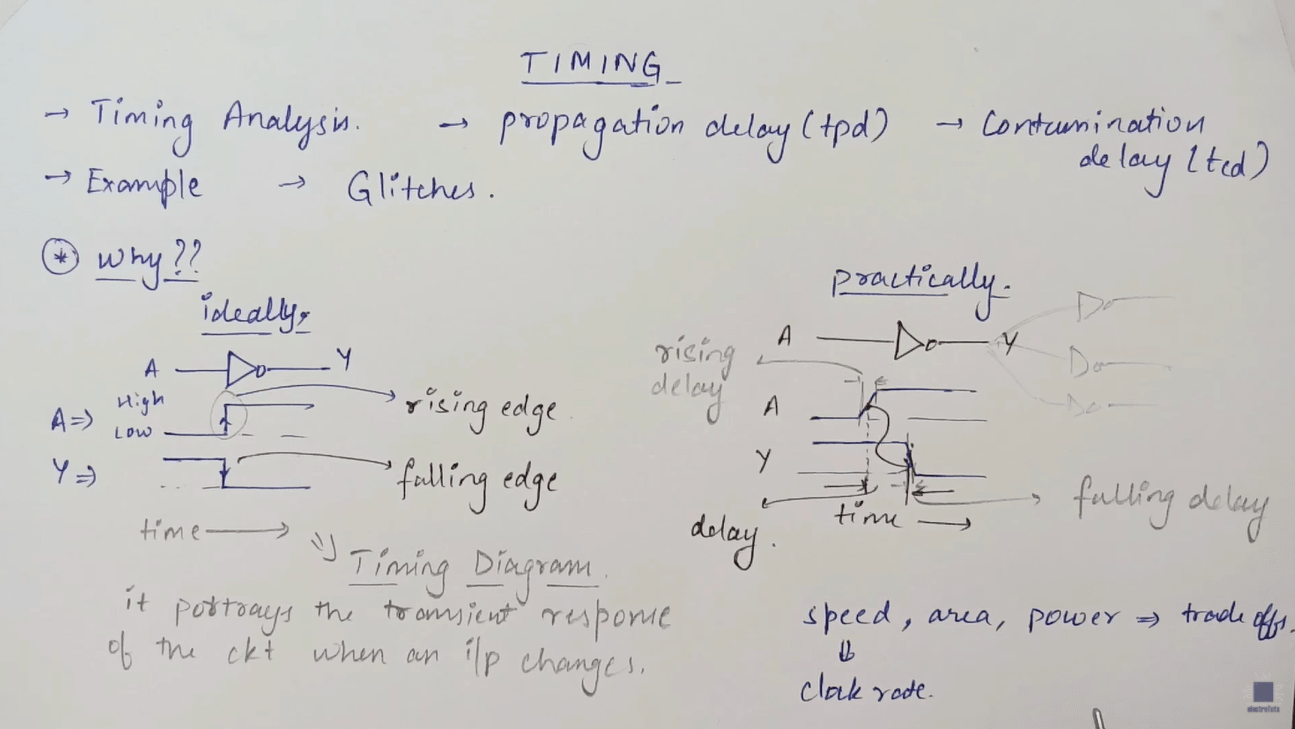 TIMING
→ Timing Analysis. → propagation delay (tpd) → Contamination
delay (tcd)
→ Example → Glitches.
* Why??
ideally,
A Y
High
A ⇒ rising edge
Low
Y ⇒ falling edge
time →
Timing Diagram.
it portrays the transient response
of the ckt when an i/p changes.
practically.
A Y
rising
delay
A
Y
delay. time → falling delay
speed, area, power ⇒ trade offs.
⇓
clock rate.